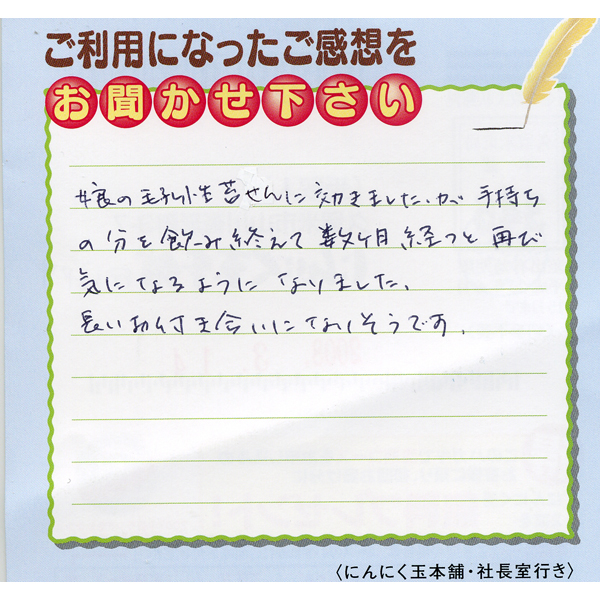 ご利用になったご感想を
お聞かせ下さい
娘の王子小性苔せんに効きました。が 手持ち
の分を飲み終えて数ヶ月経つと再び
気になるように なりました。
長いお付き合いになりそうです。
〈にんにく玉本舗・社長室行き〉